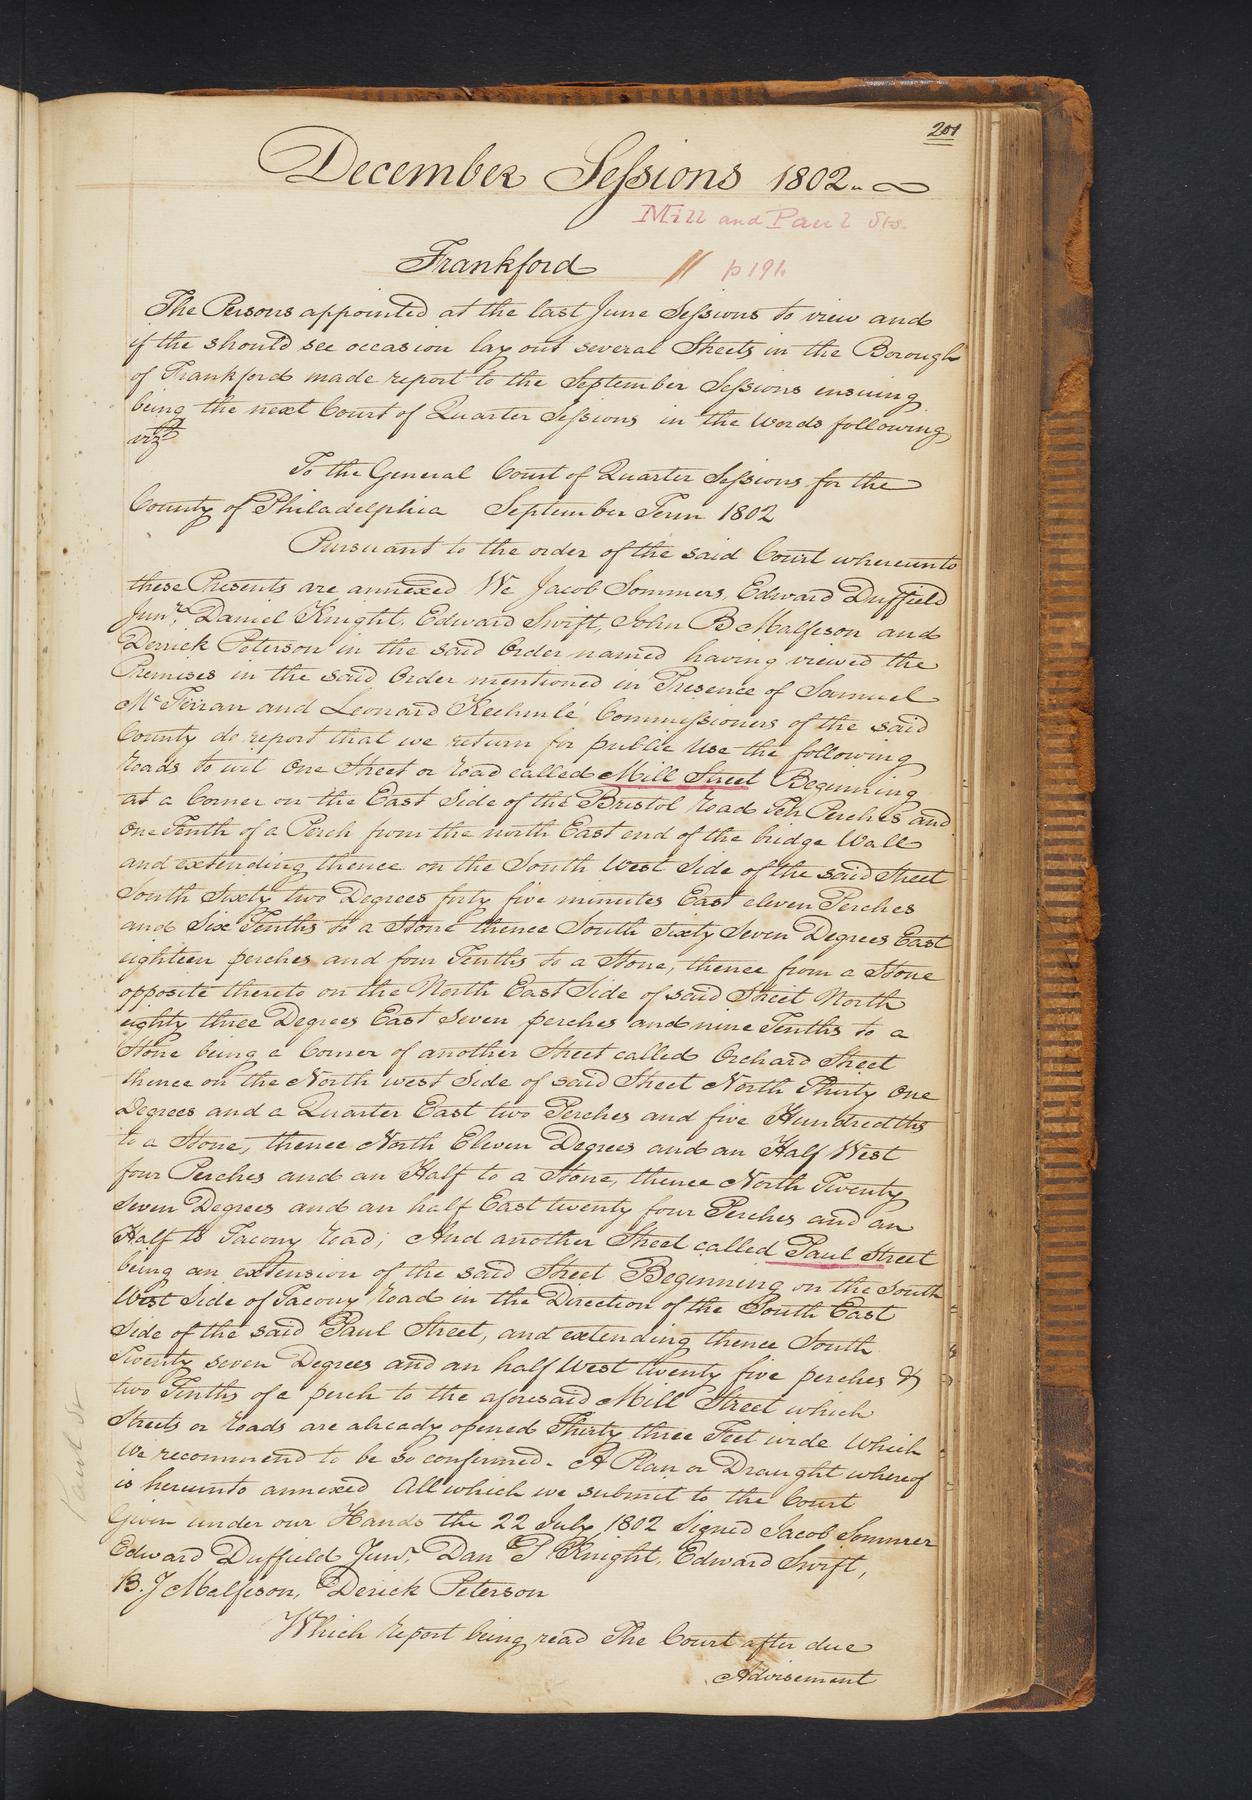 201
December Sessions 1802
Mill and Paul Sts.
Frankford // p 191.
The Persons appointed at the last June Sessions to view and
if the should see occasion lay out several Streets in the Borough
of Frankford made report to the September Sessions ensuing
being the next Court of Quarter Sessions in the Words following
vizt
To the General Court of Quarter Sessions for the
County of Philadelphia September Term 1802
Pursuant to the order of the said Court whereunto
these Presents are annexed We Jacob Sommers, Edward Duffield
Junr, Daniel Knight, Edward Swift, John B Malfeson and
Derrick Peterson in the said Order named having viewed the
Premises in the said Order mentioned in Presence of Samuel
McFerran and Leonard Keehmlé Commissioners of the said
County do report that we return for public Use the following
Roads to wit One Street or road called Mill Street Beginning
at a Corner on the East Side of the Bristol road Ten Perches and
One Tenth of a Perch from the north East end of the bridge Wall
and extending thence on the South West Side of the said Street
South Sixty two Degrees forty five minutes East eleven Perches
and Six Tenths to a Stone thence South Sixty Seven Degrees East
eighteen perches and four Tenths to a Stone, thence from a Stone
opposite thereto on the North East Side of said Street North
eighty three Degrees East Seven perches and nine Tenths to a
Stone being a Corner of another Street called Orchard Street
thence on the North west Side of said Street North Thirty One
Degrees and a Quarter East two Perches and five Hundredths
to a Stone, thence North Eleven Degrees and an Half West
four Perches and an Half to a Stone, thence North Twenty
Seven Degrees and an half East twenty four Perches and an
Half to Tacony road; And another Street called Paul Street
being an extension of the said Street Beginning on the South
West Side of Tacony Road in the Direction of the South East
Side of the said Paul Street, and extending thence South
Twenty seven Degrees and an half West twenty five perches &
two Tenths of a perch to the aforesaid Mill Street which
Streets or Roads are already opened Thirty three Feet wide Which
We recommend to be so confirmed. A Plan or Draught whereof
is hereunto annexed All which we submit to the Court
Given under our Hands the 22 July 1802 Signed Jacob Sommer
Edward Duffield Junr, Dan T Knight, Edward Swift,
B. J Malfeson, Derick Peterson
Paul St
Which report being read The Court after due
Advisement